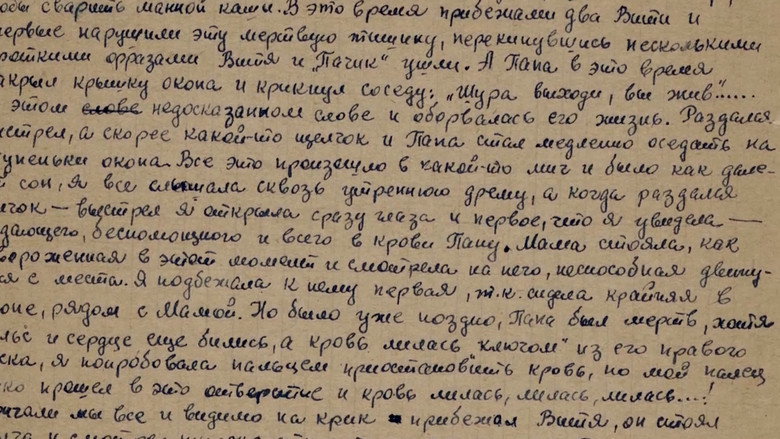 обы сварить манной каши. В это время прибежали два Вити и
первые нарушили эту мертвую тишину, перекинувшись несколькими
роткими фразами Витя и „Пачик" ушли. А Папа в это время
акрыл крышку окопа и крикнул соседу: „Шура выходи, вы жив".....
этом слове недосказанном слове и оборвалась его жизнь. Раздался
ыстрел, а скорее какой-то щелчок и Папа стал медленно оседать на
тупеньки окопа. Все это произошло в какой-то миг и было как дале-
й сон, я все слышала сквозь утреннюю дрему, а когда раздался
лчок — выстрел я открыла сразу глаза и первое, что я увидела —
дающего, беспомощного и всего в крови Папу. Мама стояла, как
вороженная в этот момент и смотрела на него, неспособная двину-
ся с места. Я подбежала к нему первая, т.к. сидела крайняя в
опе, рядом с Мамой. Но было уже поздно, Папа был мертв, хотя
льс и сердце еще бились, а кровь лилась „ключом" из его правого
ска, я попробовала пальцем приостановить кровь, но мой палец
ко прошел в это отверстие и кровь лилась, лилась, лилась....!
ричали мы все и видимо на крик прибежал Витя, он стоял